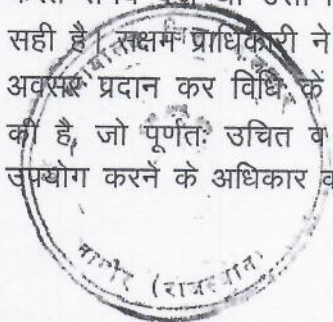 सही है। सक्षम प्राधिकारी ने
अवसर प्रदान कर विधि के
की है, जो पूर्णतः उचित व
उपयोग करने के अधिकार व
नागौर (राजस्थान)